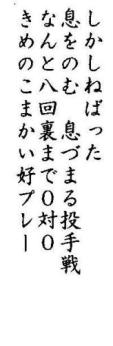 しかしねばった
息をのむ　息づまる投手戦
なんと八回裏まで０対０
きめのこまかい好プレー